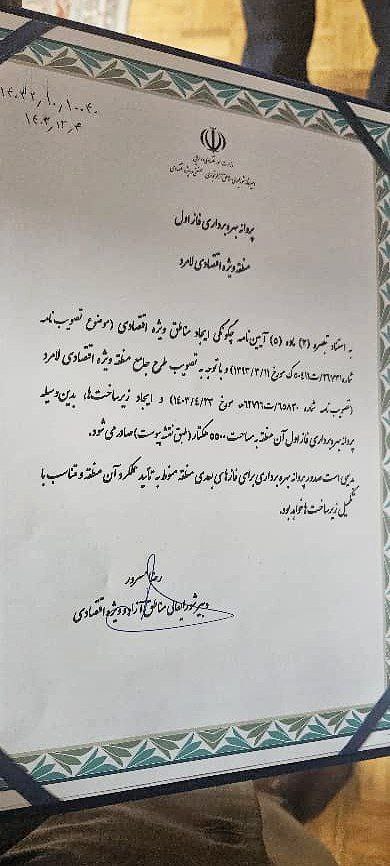 ۱۴۰۳/۱۲/۴
پروانه بهره‌برداری فاز اول
منطقه ویژه اقتصادی لامرد
به استناد تبصره (۲) ماده (۵) آیین‌نامه چگونگی ایجاد مناطق ویژه اقتصادی (موضوع تصویب‌نامه
مورخ ۱۳۹۳/۳/۱۱) و با توجه به تصویب طرح جامع منطقه ویژه اقتصادی لامرد
(تصویب نامه شماره ۶۵۸۳۰/ت۶۲۷۶۶هـ مورخ ۱۴۰۳/۴/۲۳) و ایجاد زیرساخت‌ها، بدین‌وسیله
پروانه بهره‌برداری فاز اول آن منطقه به مساحت ۵۵۰۰ هکتار (طبق نقشه پیوست) صادر می‌شود.
بدیهی است صدور پروانه بهره‌برداری برای فازهای بعدی منطقه منوط به تأیید عملکرد آن منطقه و متناسب با
تکمیل زیرساخت‌ها خواهد بود.
رضا مسرور
دبیر شورایعالی مناطق آزاد و ویژه اقتصادی